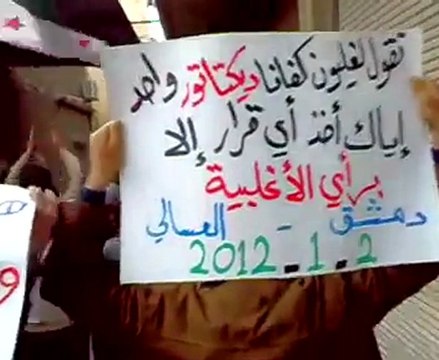 نقول لغليون كفانا ديكتاتور واحد
إياك أخذ أي قرار إلا
برأي الأغلبية
دمشق - العسالي
2012-1-2